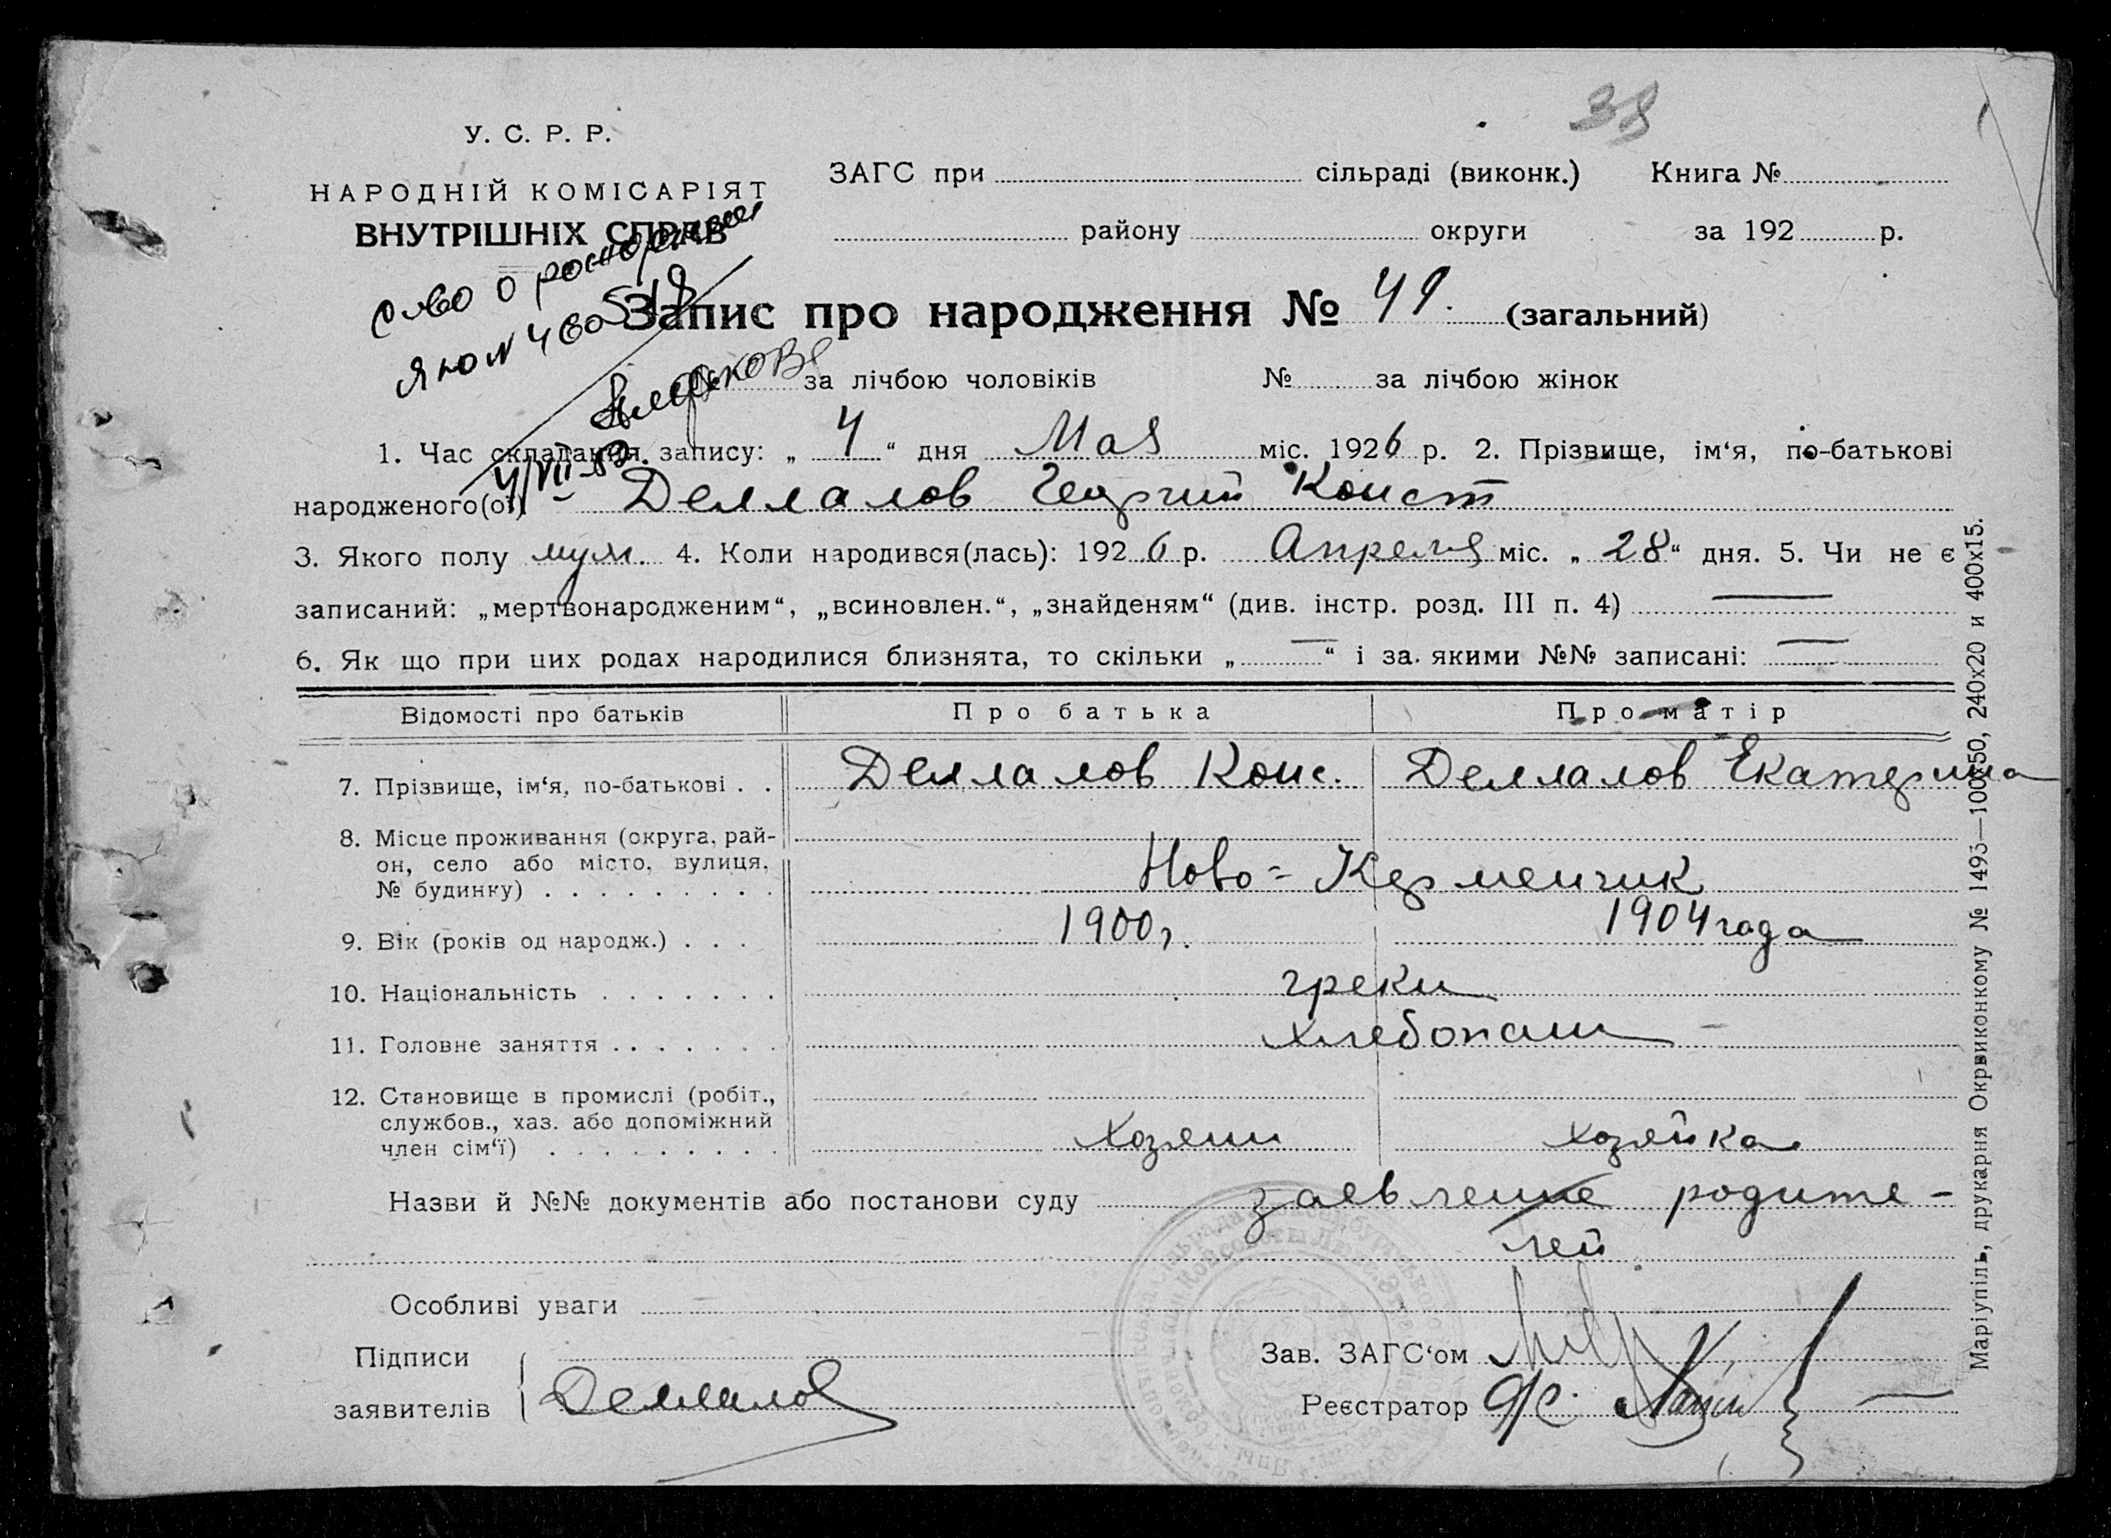 38
У. С. Р. Р.
НАРОДНІЙ КОМІСАРІЯТ
ВНУТРІШНІХ СПРАВ
ЗАГС при сільраді (виконк.) Книга №
району округи за 192 р.
с-во о рождении
Запис про народження № 49. (загальний)
за лічбою чоловіків № за лічбою жінок
1. Час складання запису: „ 4 “ дня Мая міс. 1926 р. 2. Прізвище, ім‘я, по-батькові
народженого(ої) Деллалов Георгий Конст
3. Якого полу муж. 4. Коли народився(лась): 1926 р. Апреля міс. „ 28 “ дня. 5. Чи не є
записаний: „мертвонародженим“, „всиновлен.“, „знайденям“ (див. інстр. розд. III п. 4) —
6. Як що при цих родах народилися близнята, то скільки „ — “ і за якими №№ записані: —
Відомості про батьків Про батька Про матір
7. Прізвище, ім‘я, по-батькові . . Деллалов Конс. Деллалов Екатерина
8. Місце проживання (округа, рай-
он, село або місто, вулиця,
№ будинку) . . . . . . . . . Ново-Керменчик
9. Вік (років од народж.) . . . 1900 г. 1904 года
10. Національність . . . . . . . греки
11. Головне заняття . . . . . . . хлебопаш —
12. Становище в промислі (робіт.,
службов., хаз. або допоміжний
член сім‘ї) . . . . . . . . . Хозяин хозяйка
Назви й №№ документів або постанови суду заевление родите-
лей
Особливі уваги
Підписи
заявителів Деллалов
Зав. ЗАГС‘ом
Реєстратор
Маріупіль, друкарня Окрвиконкому № 1493—100х50, 240х20 и 400х15.